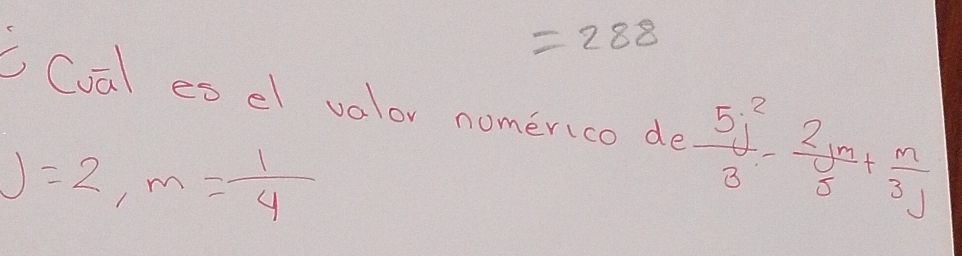 = 288
¿Cuāl es el valor numérico de 5j²/3 - 2jm/5 + m/3j
J = 2, m = 1/4